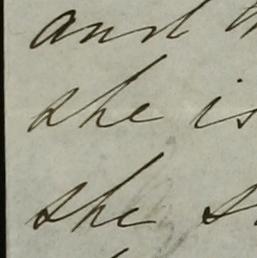 and
she is
she